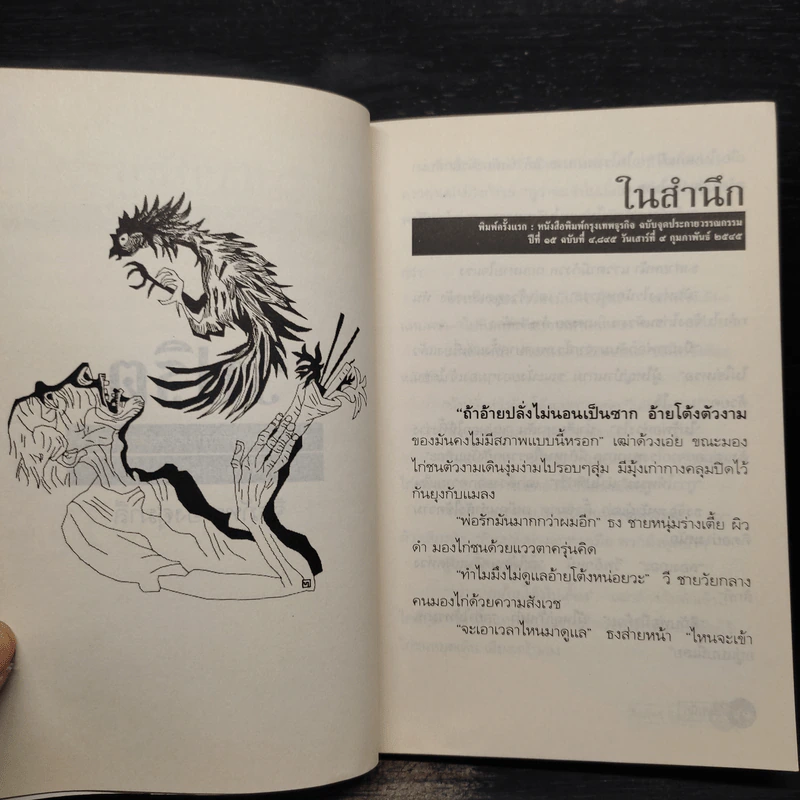 ในสำนึก
พิมพ์ครั้งแรก : หนังสือพิมพ์กรุงเทพธุรกิจ ฉบับจุดประกายวรรณกรรม
ปีที่ ๑๕ ฉบับที่ ๔,๘๙๕ วันเสาร์ที่ ๙ กุมภาพันธ์ ๒๕๔๕
"ถ้าอ้ายปลั่งไม่นอนเป็นซาก อ้ายโต้งตัวงาม
ของมันคงไม่มีสภาพแบบนี้หรอก" เฒ่าด้วงเอ่ย ขณะมอง
ไก่ชนตัวงามเดินงุ่มง่ามไปรอบๆสุ่ม มีมุ้งเก่ากางคลุมปิดไว้
กันยุงกับแมลง
"พ่อรักมันมากกว่าผมอีก" ธง ชายหนุ่มร่างเตี้ย ผิว
ดำ มองไก่ชนด้วยแววตาครุ่นคิด
"ทำไมมึงไม่ดูแลอ้ายโต้งหน่อยวะ" วี ชายวัยกลาง
คนมองไก่ด้วยความสังเวช
"จะเอาเวลาไหนมาดูแล" ธงส่ายหน้า "ไหนจะเข้า